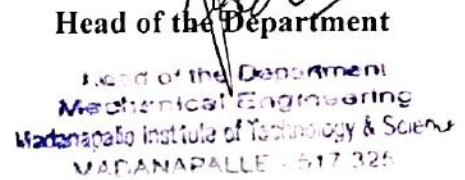 Head of the Department
Head of the Department
Mechanical Engineering
Madanapalle Institute of Technology & Science
MADANAPALLE - 517 325